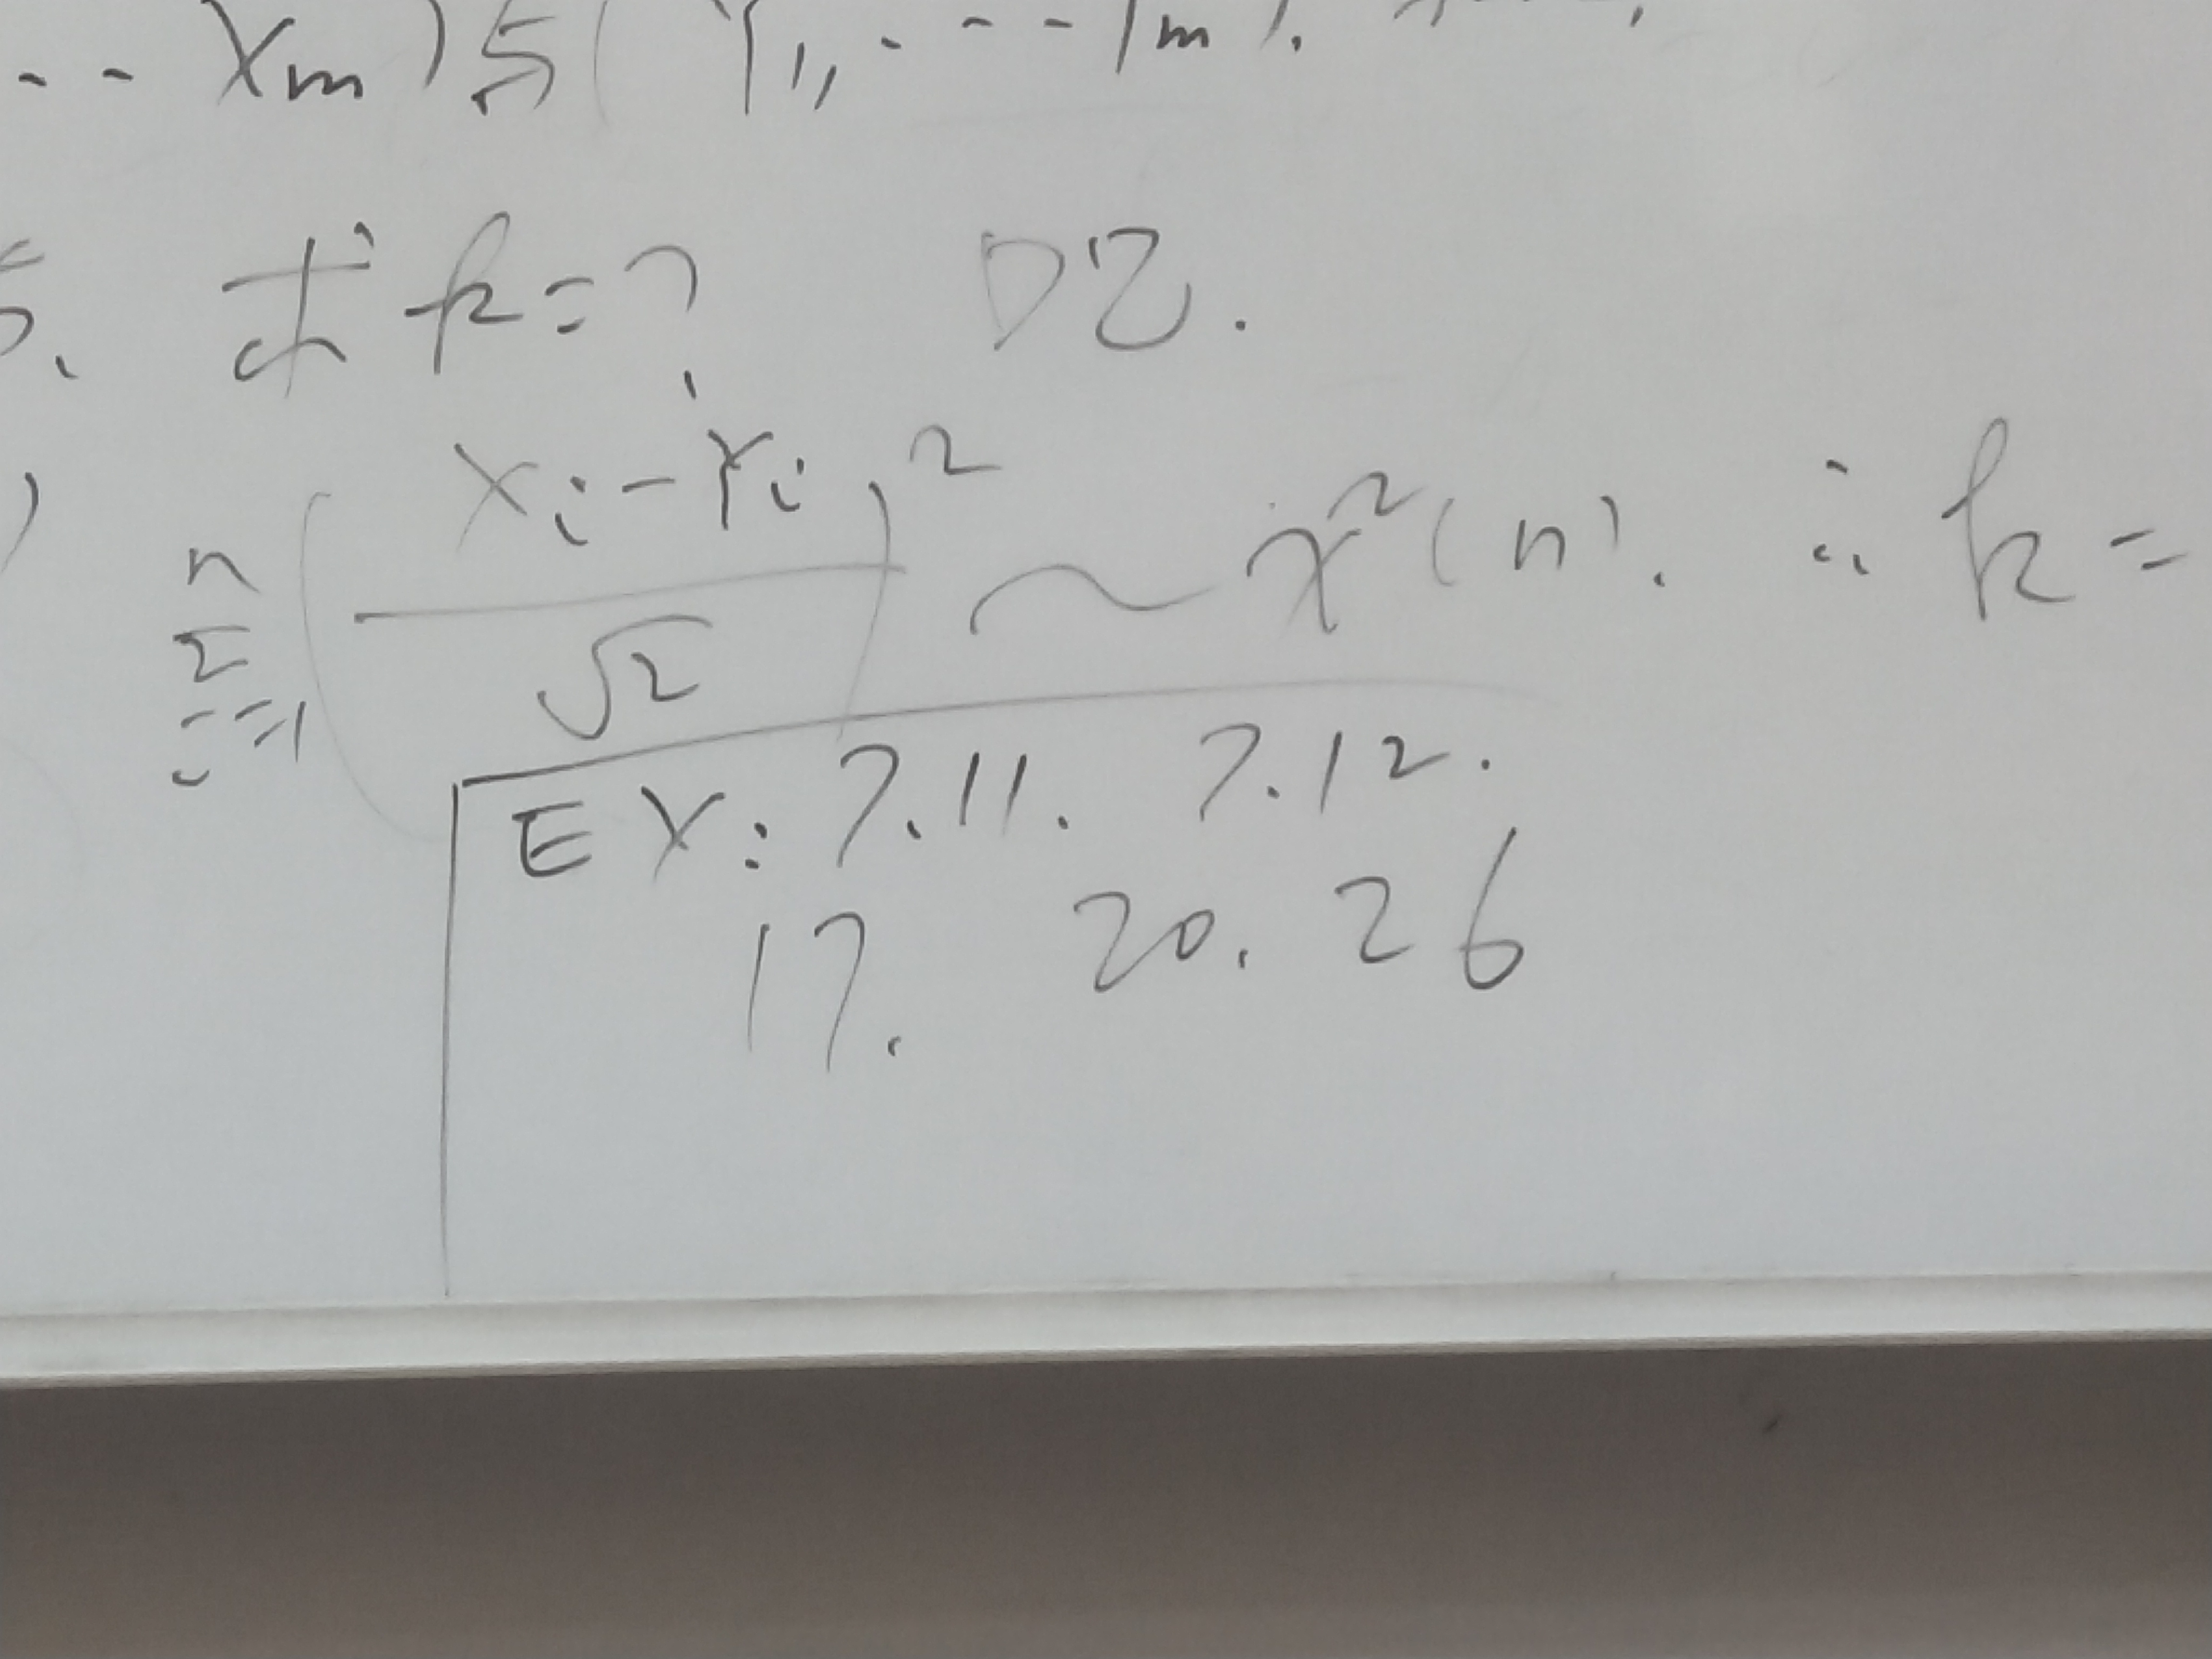 -- Xm) 与 ( Y1, . -- Ym).
求 k = ? DZ.
n Σ i=1 ( (Xi - Yi) / √2 )² ~ χ²(n). ∴ k =
EX: 7.11. 7.12.
17. 20. 26